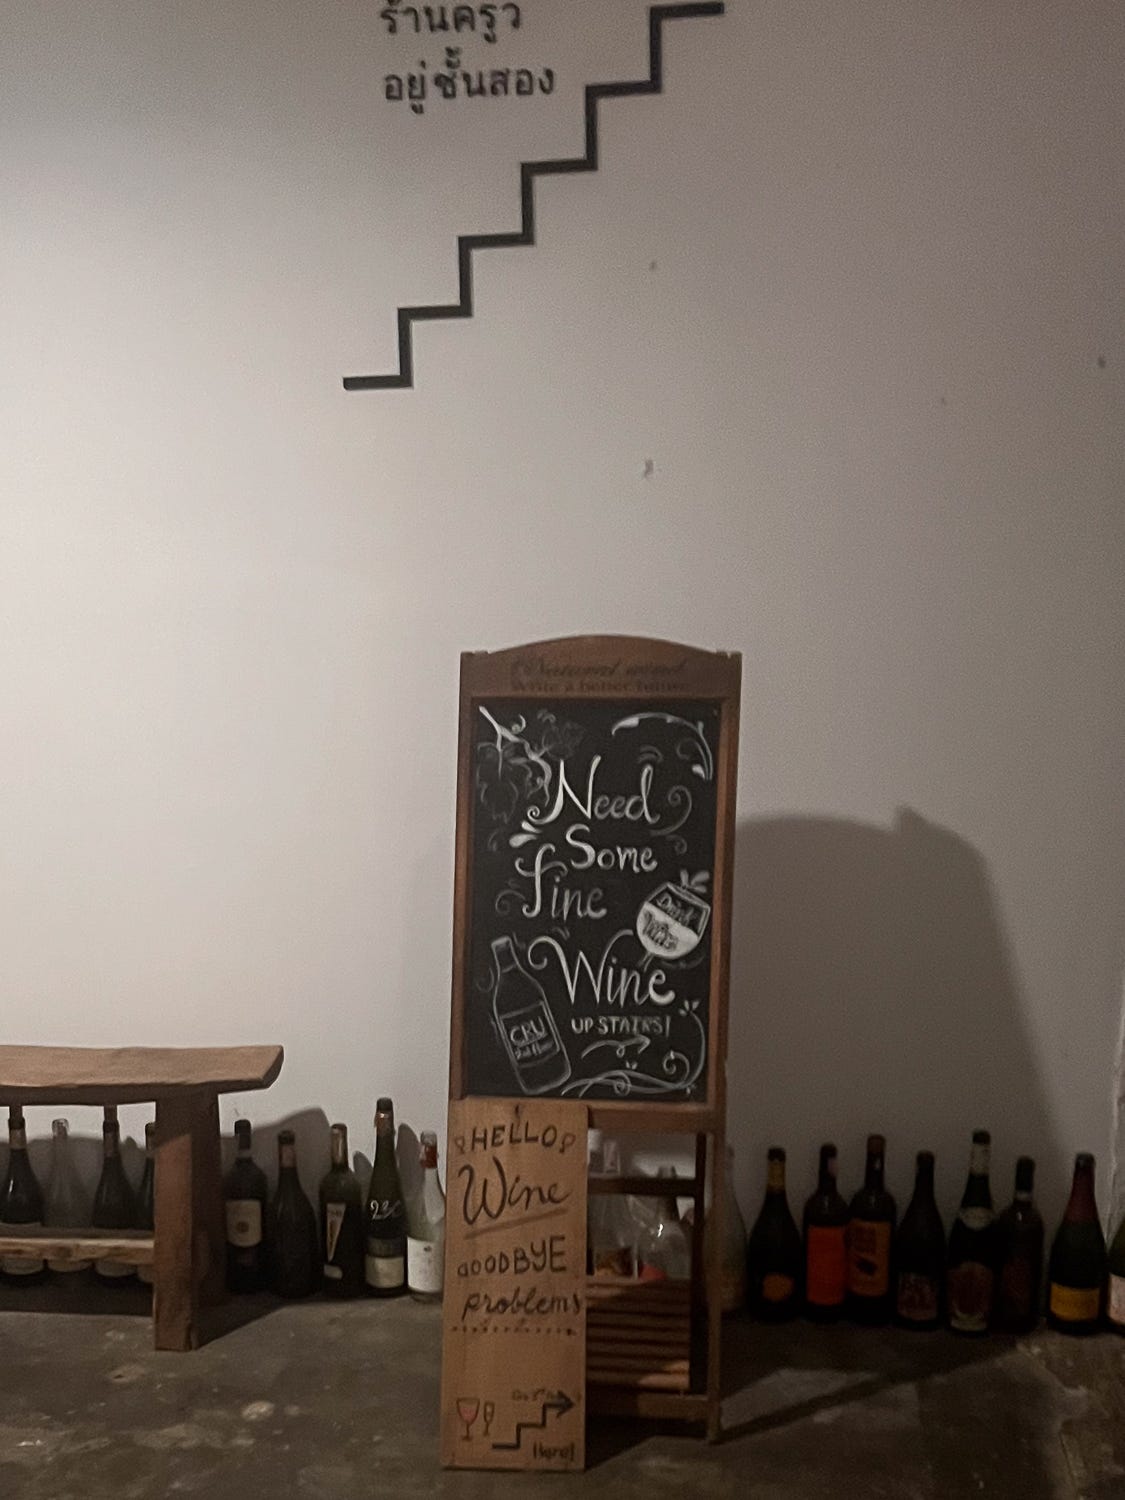 ร้านครูว
อยู่ชั้นสอง
Write a better future
Need
Some
fine
Drink
Wine
Wine
UP STAIRS!
CRU
2nd floor
HELLO
Wine
GOODBYE
problems
Here!